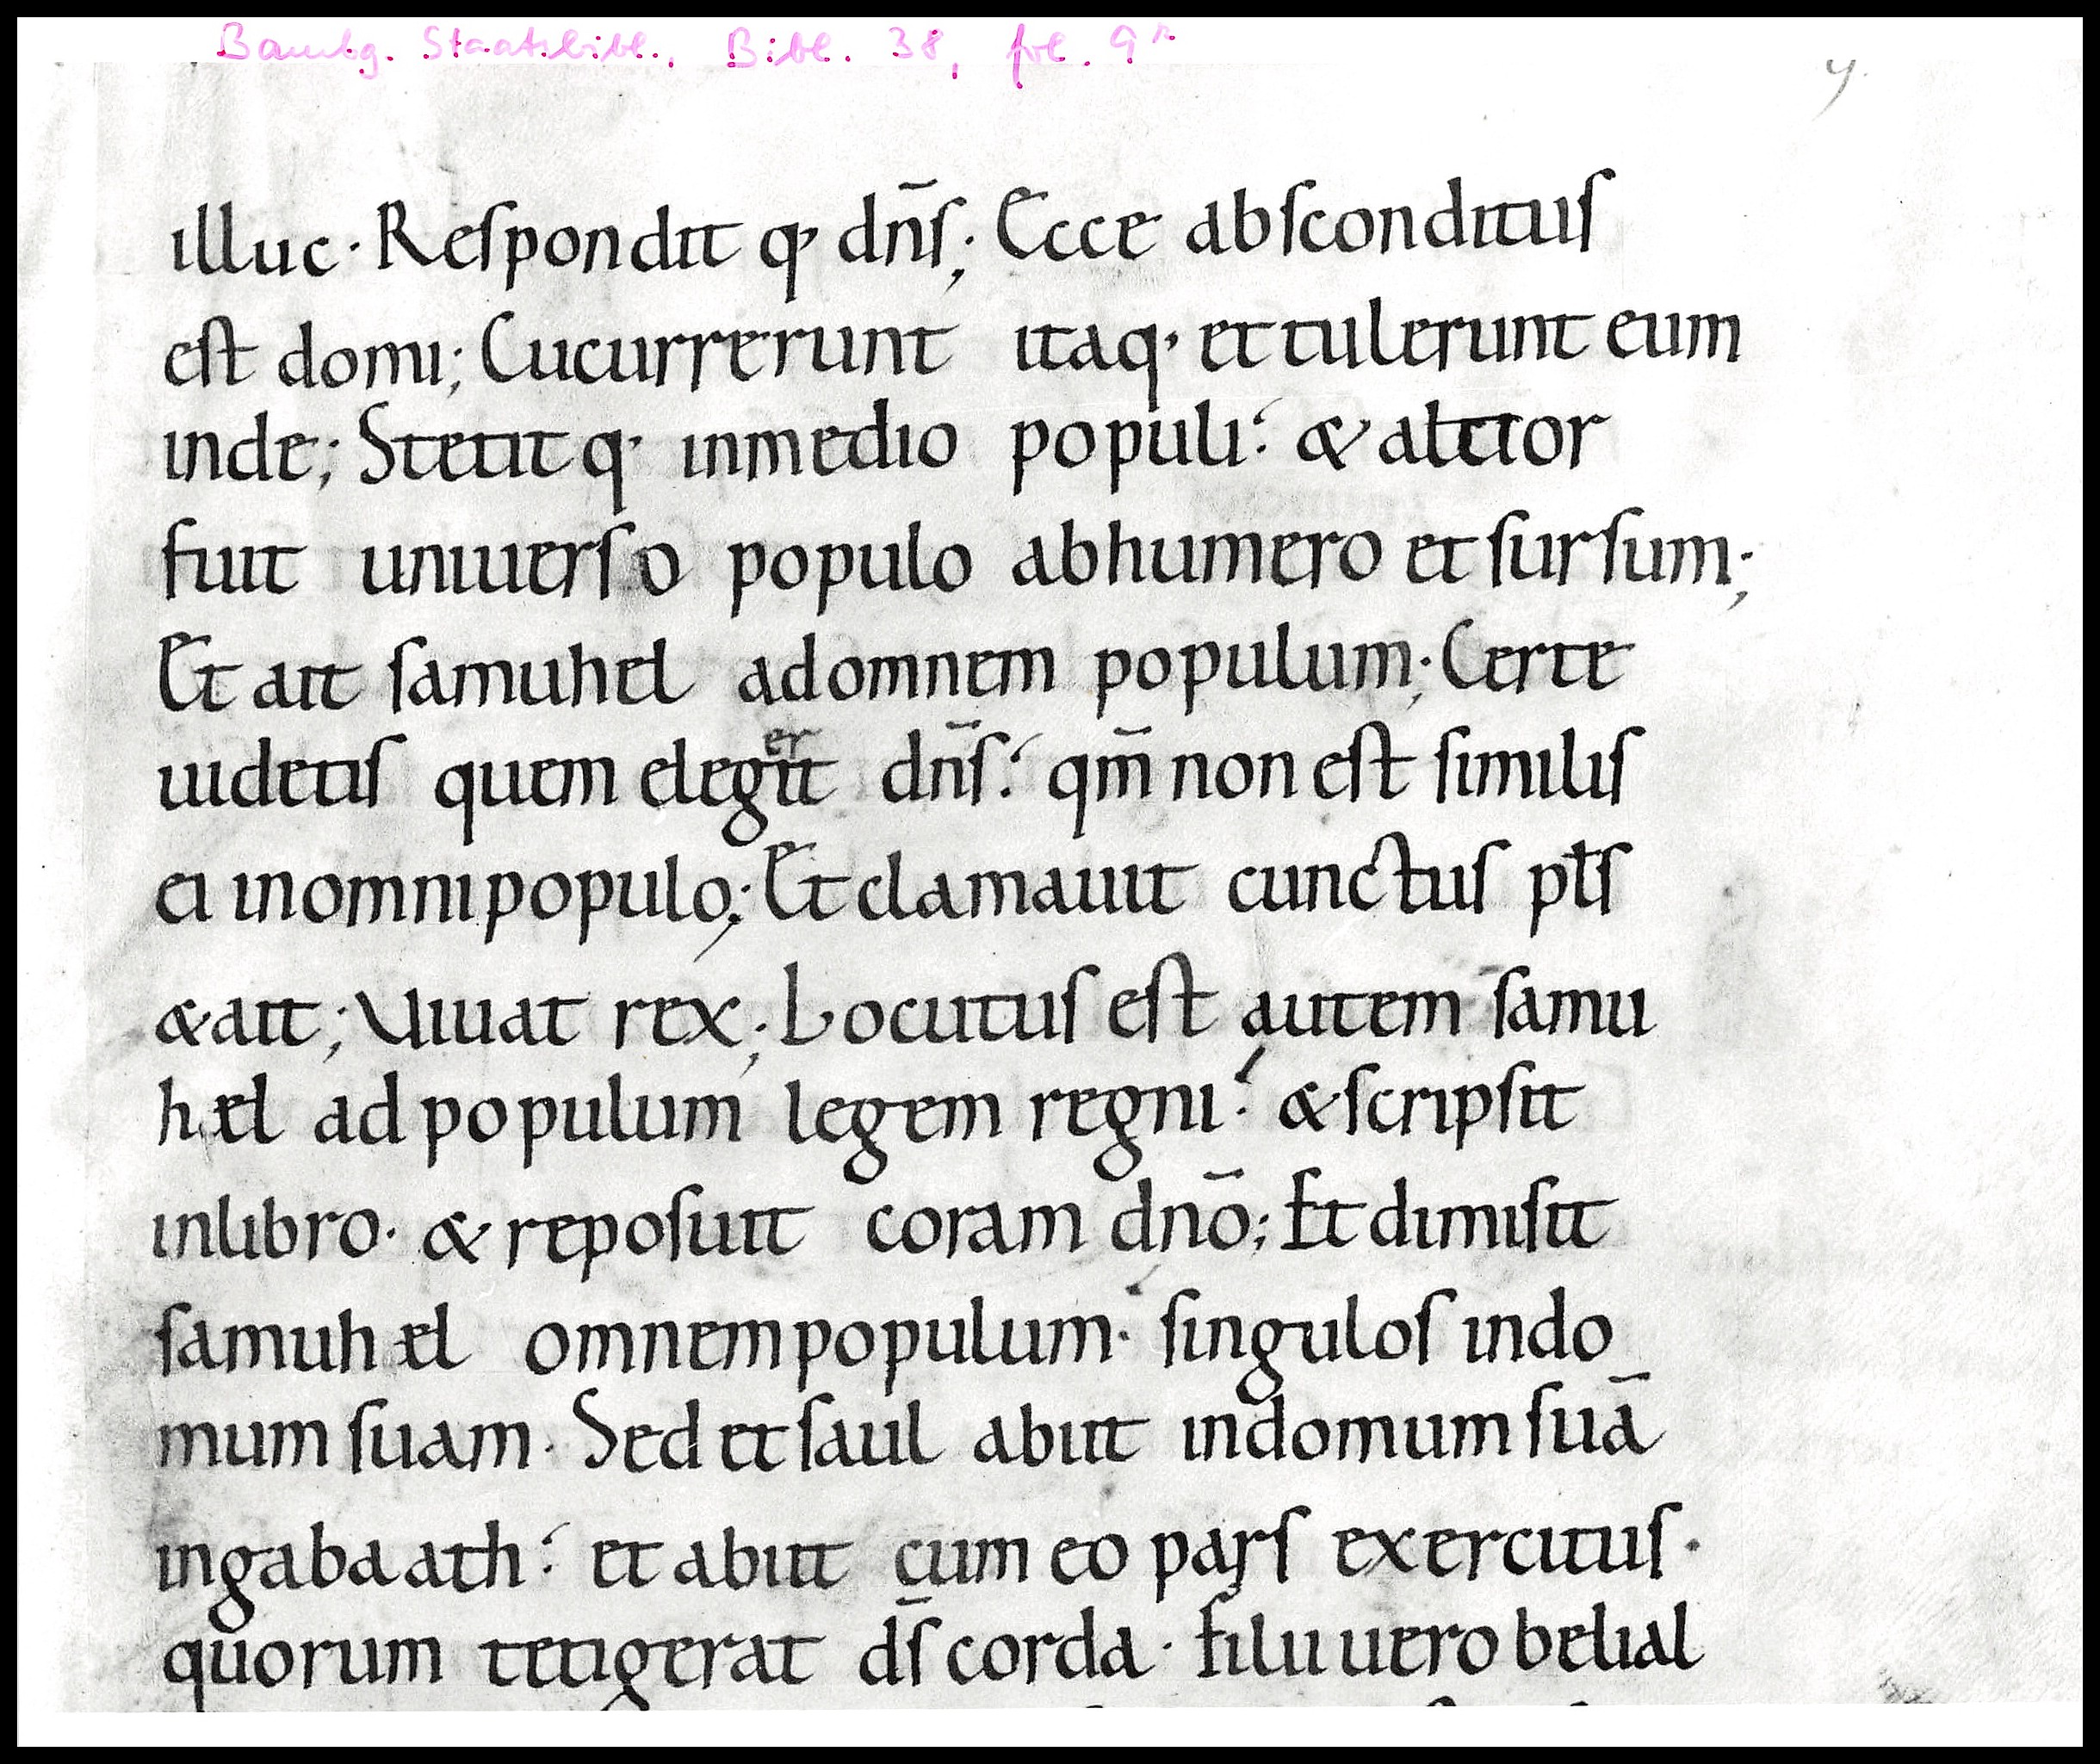 Bambg. Staatsbibl., Bibl. 38, fol. 9r
9.
illuc · Reſpondit q· dn̄ſ; Ecce abſcondituſ
eſt domi; Cucurrerunt itaq· et tulerunt eum
inde; Stetit q· inmedio populi⸵ & altior
fuit uniuerſo populo abhumero et ſurſum;
Et ait ſamuhel adomnem populum; Certe
uidetiſ quem elegit er dn̄ſ⸵ qm̄ non eſt ſimiliſ
ei inomnipopulo; Et clamauit cunctuſ pl̄ſ
& ait; Uiuat rex; Locutuſ eſt autem ſamu
hęl ad populum legem regni⸵ & ſcripſit
inlibro · & repoſuit coram dn̄o; Et dimiſit
ſamuhęl omnempopulum · ſinguloſ indo
mum ſuam · Sed et ſaul abiit indomum ſuā
ingabaath⸵ et abiit cum eo parſ exercituſ ·
quorum tetigerat d̄ſ corda · filii uero belial